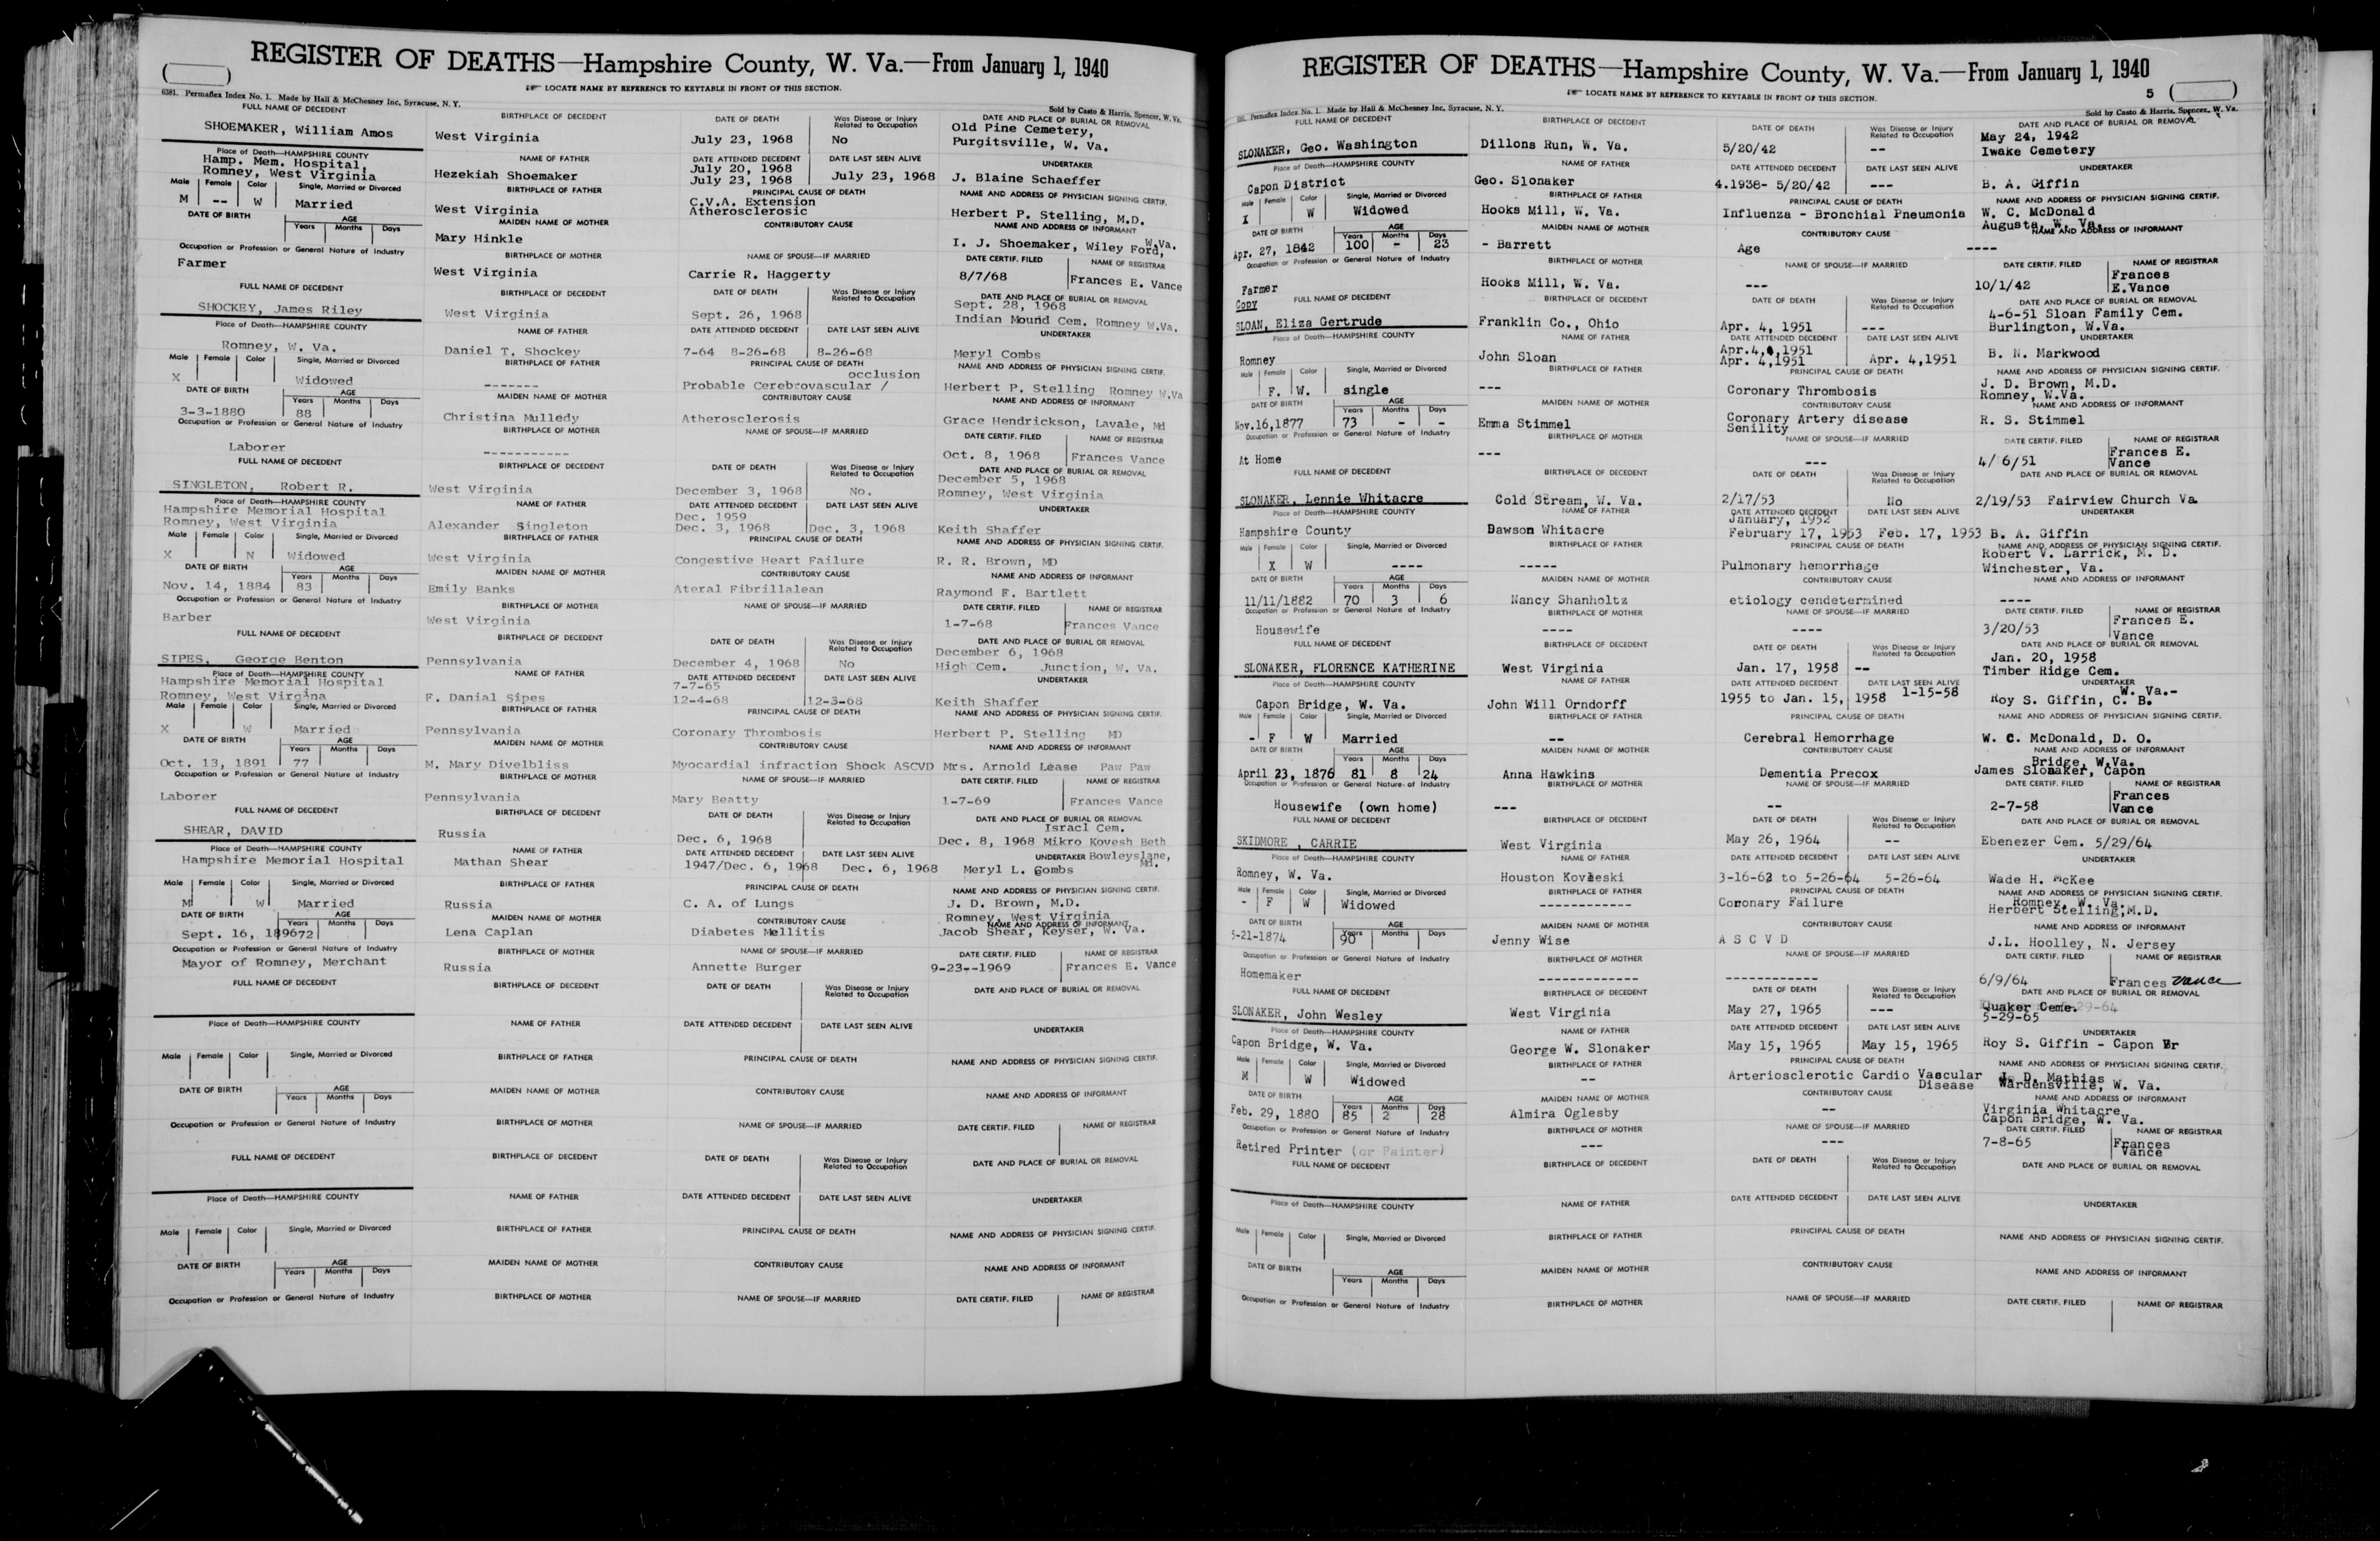 REGISTER OF DEATHS—Hampshire County, W. Va.—From January 1, 1940
LOCATE NAME BY REFERENCE TO KEYTABLE IN FRONT OF THIS SECTION.
6381. Permaflex Index No. 1. Made by Hall & McChesney Inc, Syracuse, N. Y.
Sold by Casto & Harris, Spencer, W. Va.
FULL NAME OF DECEDENT BIRTHPLACE OF DECEDENT DATE OF DEATH Was Disease or Injury Related to Occupation DATE AND PLACE OF BURIAL OR REMOVAL
SHOEMAKER, William Amos West Virginia July 23, 1968 No Old Pine Cemetery, Purgitsville, W. Va.
Place of Death—HAMPSHIRE COUNTY NAME OF FATHER DATE ATTENDED DECEDENT DATE LAST SEEN ALIVE UNDERTAKER
Hamp. Mem. Hospital, Romney, West Virginia Hezekiah Shoemaker July 20, 1968 July 23, 1968 July 23, 1968 J. Blaine Schaeffer
Male Female Color Single, Married or Divorced BIRTHPLACE OF FATHER PRINCIPAL CAUSE OF DEATH NAME AND ADDRESS OF PHYSICIAN SIGNING CERTIF.
M -- W Married West Virginia C.V.A. Extension Atherosclerosic Herbert P. Stelling, M.D.
DATE OF BIRTH AGE Years Months Days MAIDEN NAME OF MOTHER CONTRIBUTORY CAUSE NAME AND ADDRESS OF INFORMANT
Mary Hinkle I. J. Shoemaker, Wiley Ford, W.Va.
Occupation or Profession or General Nature of Industry BIRTHPLACE OF MOTHER NAME OF SPOUSE—IF MARRIED DATE CERTIF. FILED NAME OF REGISTRAR
Farmer West Virginia Carrie R. Haggerty 8/7/68 Frances E. Vance
FULL NAME OF DECEDENT BIRTHPLACE OF DECEDENT DATE OF DEATH Was Disease or Injury Related to Occupation DATE AND PLACE OF BURIAL OR REMOVAL
SHOCKEY, James Riley West Virginia Sept. 26, 1968 Sept. 28, 1968 Indian Mound Cem. Romney W.Va.
Place of Death—HAMPSHIRE COUNTY NAME OF FATHER DATE ATTENDED DECEDENT DATE LAST SEEN ALIVE UNDERTAKER
Romney, W. Va. Daniel T. Shockey 7-64 8-26-68 8-26-68 Meryl Combs
Male Female Color Single, Married or Divorced BIRTHPLACE OF FATHER PRINCIPAL CAUSE OF DEATH NAME AND ADDRESS OF PHYSICIAN SIGNING CERTIF.
X Widowed ------- Probable Cerebrovascular / occlusion Herbert P. Stelling Romney W.Va
DATE OF BIRTH AGE Years Months Days MAIDEN NAME OF MOTHER CONTRIBUTORY CAUSE NAME AND ADDRESS OF INFORMANT
3-3-1880 88 Christina Mulledy Atherosclerosis Grace Hendrickson, Lavale, Md
Occupation or Profession or General Nature of Industry BIRTHPLACE OF MOTHER NAME OF SPOUSE—IF MARRIED DATE CERTIF. FILED NAME OF REGISTRAR
Laborer ----------- Oct. 8, 1968 Frances Vance
FULL NAME OF DECEDENT BIRTHPLACE OF DECEDENT DATE OF DEATH Was Disease or Injury Related to Occupation DATE AND PLACE OF BURIAL OR REMOVAL
SINGLETON, Robert R. West Virginia December 3, 1968 No. December 5, 1968 Romney, West Virginia
Place of Death—HAMPSHIRE COUNTY NAME OF FATHER DATE ATTENDED DECEDENT DATE LAST SEEN ALIVE UNDERTAKER
Hampshire Memorial Hospital Romney, West Virginia Alexander Singleton Dec. 1959 Dec. 3, 1968 Dec. 3, 1968 Keith Shaffer
Male Female Color Single, Married or Divorced BIRTHPLACE OF FATHER PRINCIPAL CAUSE OF DEATH NAME AND ADDRESS OF PHYSICIAN SIGNING CERTIF.
X N Widowed West Virginia Congestive Heart Failure R. R. Brown, MD
DATE OF BIRTH AGE Years Months Days MAIDEN NAME OF MOTHER CONTRIBUTORY CAUSE NAME AND ADDRESS OF INFORMANT
Nov. 14, 1884 83 Emily Banks Ateral Fibrillalean Raymond F. Bartlett
Occupation or Profession or General Nature of Industry BIRTHPLACE OF MOTHER NAME OF SPOUSE—IF MARRIED DATE CERTIF. FILED NAME OF REGISTRAR
Barber West Virginia 1-7-68 Frances Vance
FULL NAME OF DECEDENT BIRTHPLACE OF DECEDENT DATE OF DEATH Was Disease or Injury Related to Occupation DATE AND PLACE OF BURIAL OR REMOVAL
SIPES, George Benton Pennsylvania December 4, 1968 No December 6, 1968 High Cem. Junction, W. Va.
Place of Death—HAMPSHIRE COUNTY NAME OF FATHER DATE ATTENDED DECEDENT DATE LAST SEEN ALIVE UNDERTAKER
Hampshire Memorial Hospital Romney, West Virgina F. Danial Sipes 7-7-65 12-4-68 12-3-68 Keith Shaffer
Male Female Color Single, Married or Divorced BIRTHPLACE OF FATHER PRINCIPAL CAUSE OF DEATH NAME AND ADDRESS OF PHYSICIAN SIGNING CERTIF.
X W Married Pennsylvania Coronary Thrombosis Herbert P. Stelling MD
DATE OF BIRTH AGE Years Months Days MAIDEN NAME OF MOTHER CONTRIBUTORY CAUSE NAME AND ADDRESS OF INFORMANT
Oct. 13, 1891 77 M. Mary Divelbliss Myocardial infraction Shock ASCVD Mrs. Arnold Lease Paw Paw
Occupation or Profession or General Nature of Industry BIRTHPLACE OF MOTHER NAME OF SPOUSE—IF MARRIED DATE CERTIF. FILED NAME OF REGISTRAR
Laborer Pennsylvania Mary Beatty 1-7-69 Frances Vance
FULL NAME OF DECEDENT BIRTHPLACE OF DECEDENT DATE OF DEATH Was Disease or Injury Related to Occupation DATE AND PLACE OF BURIAL OR REMOVAL
SHEAR, DAVID Russia Dec. 6, 1968 Dec. 8, 1968 Mikro Kovesh Beth Isracl Cem.
Place of Death—HAMPSHIRE COUNTY NAME OF FATHER DATE ATTENDED DECEDENT DATE LAST SEEN ALIVE UNDERTAKER Bowleyslane, Md.
Hampshire Memorial Hospital Mathan Shear 1947/Dec. 6, 1968 Dec. 6, 1968 Meryl L. Combs
Male Female Color Single, Married or Divorced BIRTHPLACE OF FATHER PRINCIPAL CAUSE OF DEATH NAME AND ADDRESS OF PHYSICIAN SIGNING CERTIF.
M W Married Russia C. A. of Lungs J. D. Brown, M.D. Romney, West Virginia
DATE OF BIRTH AGE Years Months Days MAIDEN NAME OF MOTHER CONTRIBUTORY CAUSE NAME AND ADDRESS OF INFORMANT
Sept. 16, 1896 72 Lena Caplan Diabetes Mellitis Jacob Shear, Keyser, W. Va.
Occupation or Profession or General Nature of Industry BIRTHPLACE OF MOTHER NAME OF SPOUSE—IF MARRIED DATE CERTIF. FILED NAME OF REGISTRAR
Mayor of Romney, Merchant Russia Annette Burger 9-23--1969 Frances E. Vance
FULL NAME OF DECEDENT BIRTHPLACE OF DECEDENT DATE OF DEATH Was Disease or Injury Related to Occupation DATE AND PLACE OF BURIAL OR REMOVAL
Place of Death—HAMPSHIRE COUNTY NAME OF FATHER DATE ATTENDED DECEDENT DATE LAST SEEN ALIVE UNDERTAKER
Male Female Color Single, Married or Divorced BIRTHPLACE OF FATHER PRINCIPAL CAUSE OF DEATH NAME AND ADDRESS OF PHYSICIAN SIGNING CERTIF.
DATE OF BIRTH AGE Years Months Days MAIDEN NAME OF MOTHER CONTRIBUTORY CAUSE NAME AND ADDRESS OF INFORMANT
Occupation or Profession or General Nature of Industry BIRTHPLACE OF MOTHER NAME OF SPOUSE—IF MARRIED DATE CERTIF. FILED NAME OF REGISTRAR
FULL NAME OF DECEDENT BIRTHPLACE OF DECEDENT DATE OF DEATH Was Disease or Injury Related to Occupation DATE AND PLACE OF BURIAL OR REMOVAL
Place of Death—HAMPSHIRE COUNTY NAME OF FATHER DATE ATTENDED DECEDENT DATE LAST SEEN ALIVE UNDERTAKER
Male Female Color Single, Married or Divorced BIRTHPLACE OF FATHER PRINCIPAL CAUSE OF DEATH NAME AND ADDRESS OF PHYSICIAN SIGNING CERTIF.
DATE OF BIRTH AGE Years Months Days MAIDEN NAME OF MOTHER CONTRIBUTORY CAUSE NAME AND ADDRESS OF INFORMANT
Occupation or Profession or General Nature of Industry BIRTHPLACE OF MOTHER NAME OF SPOUSE—IF MARRIED DATE CERTIF. FILED NAME OF REGISTRAR
REGISTER OF DEATHS—Hampshire County, W. Va.—From January 1, 1940
LOCATE NAME BY REFERENCE TO KEYTABLE IN FRONT OF THIS SECTION. 5
Permaflex Index No. 1. Made by Hall & McChesney Inc, Syracuse, N. Y.
Sold by Casto & Harris, Spencer, W. Va.
FULL NAME OF DECEDENT BIRTHPLACE OF DECEDENT DATE OF DEATH Was Disease or Injury Related to Occupation DATE AND PLACE OF BURIAL OR REMOVAL
SLONAKER, Geo. Washington Dillons Run, W. Va. 5/20/42 -- May 24, 1942 Iwake Cemetery
Place of Death—HAMPSHIRE COUNTY NAME OF FATHER DATE ATTENDED DECEDENT DATE LAST SEEN ALIVE UNDERTAKER
Capon District Geo. Slonaker 4.1938- 5/20/42 --- B. A. Giffin
Male Female Color Single, Married or Divorced BIRTHPLACE OF FATHER PRINCIPAL CAUSE OF DEATH NAME AND ADDRESS OF PHYSICIAN SIGNING CERTIF.
X W Widowed Hooks Mill, W. Va. Influenza - Bronchial Pneumonia W. C. McDonald Augusta, W. Va.
DATE OF BIRTH AGE Years Months Days MAIDEN NAME OF MOTHER CONTRIBUTORY CAUSE NAME AND ADDRESS OF INFORMANT
Apr. 27, 1842 100 - 23 - Barrett Age ----
Occupation or Profession or General Nature of Industry BIRTHPLACE OF MOTHER NAME OF SPOUSE—IF MARRIED DATE CERTIF. FILED NAME OF REGISTRAR
Farmer Hooks Mill, W. Va. --- 10/1/42 Frances E.Vance
Copy
FULL NAME OF DECEDENT BIRTHPLACE OF DECEDENT DATE OF DEATH Was Disease or Injury Related to Occupation DATE AND PLACE OF BURIAL OR REMOVAL
SLOAN, Eliza Gertrude Franklin Co., Ohio Apr. 4, 1951 --- 4-6-51 Sloan Family Cem. Burlington, W.Va.
Place of Death—HAMPSHIRE COUNTY NAME OF FATHER DATE ATTENDED DECEDENT DATE LAST SEEN ALIVE UNDERTAKER
Romney John Sloan Apr.4, 1951 Apr. 4,1951 Apr. 4,1951 B. N. Markwood
Male Female Color Single, Married or Divorced BIRTHPLACE OF FATHER PRINCIPAL CAUSE OF DEATH NAME AND ADDRESS OF PHYSICIAN SIGNING CERTIF.
F. W. single --- Coronary Thrombosis J. D. Brown, M.D. Romney, W.Va.
DATE OF BIRTH AGE Years Months Days MAIDEN NAME OF MOTHER CONTRIBUTORY CAUSE NAME AND ADDRESS OF INFORMANT
Nov.16,1877 73 - - Emma Stimmel Coronary Artery disease Senility R. S. Stimmel
Occupation or Profession or General Nature of Industry BIRTHPLACE OF MOTHER NAME OF SPOUSE—IF MARRIED DATE CERTIF. FILED NAME OF REGISTRAR
At Home --- --- 4/6/51 Frances E. Vance
FULL NAME OF DECEDENT BIRTHPLACE OF DECEDENT DATE OF DEATH Was Disease or Injury Related to Occupation DATE AND PLACE OF BURIAL OR REMOVAL
SLONAKER, Lennie Whitacre Cold Stream, W. Va. 2/17/53 No 2/19/53 Fairview Church Va.
Place of Death—HAMPSHIRE COUNTY NAME OF FATHER DATE ATTENDED DECEDENT DATE LAST SEEN ALIVE UNDERTAKER
Hampshire County Dawson Whitacre January, 1952 February 17, 1953 Feb. 17, 1953 B. A. Giffin
Male Female Color Single, Married or Divorced BIRTHPLACE OF FATHER PRINCIPAL CAUSE OF DEATH NAME AND ADDRESS OF PHYSICIAN SIGNING CERTIF.
X W ---- ----- Pulmonary hemorrhage Robert V. Larrick, M. D. Winchester, Va.
DATE OF BIRTH AGE Years Months Days MAIDEN NAME OF MOTHER CONTRIBUTORY CAUSE NAME AND ADDRESS OF INFORMANT
11/11/1882 70 3 6 Nancy Shanholtz etiology cendetermined ----
Occupation or Profession or General Nature of Industry BIRTHPLACE OF MOTHER NAME OF SPOUSE—IF MARRIED DATE CERTIF. FILED NAME OF REGISTRAR
Housewife ---- ---- 3/20/53 Frances E. Vance
FULL NAME OF DECEDENT BIRTHPLACE OF DECEDENT DATE OF DEATH Was Disease or Injury Related to Occupation DATE AND PLACE OF BURIAL OR REMOVAL
SLONAKER, FLORENCE KATHERINE West Virginia Jan. 17, 1958 -- Jan. 20, 1958 Timber Ridge Cem.
Place of Death—HAMPSHIRE COUNTY NAME OF FATHER DATE ATTENDED DECEDENT DATE LAST SEEN ALIVE UNDERTAKER
Capon Bridge, W. Va. John Will Orndorff 1955 to Jan. 15, 1958 1-15-58 Roy S. Giffin, C. B. W. Va.-
Male Female Color Single, Married or Divorced BIRTHPLACE OF FATHER PRINCIPAL CAUSE OF DEATH NAME AND ADDRESS OF PHYSICIAN SIGNING CERTIF.
- F W Married -- Cerebral Hemorrhage W. C. McDonald, D. O.
DATE OF BIRTH AGE Years Months Days MAIDEN NAME OF MOTHER CONTRIBUTORY CAUSE NAME AND ADDRESS OF INFORMANT
April 23, 1876 81 8 24 Anna Hawkins Dementia Precox James Slonaker, Capon Bridge, W.Va.
Occupation or Profession or General Nature of Industry BIRTHPLACE OF MOTHER NAME OF SPOUSE—IF MARRIED DATE CERTIF. FILED NAME OF REGISTRAR
Housewife (own home) --- -- 2-7-58 Frances Vance
FULL NAME OF DECEDENT BIRTHPLACE OF DECEDENT DATE OF DEATH Was Disease or Injury Related to Occupation DATE AND PLACE OF BURIAL OR REMOVAL
SKIDMORE , CARRIE West Virginia May 26, 1964 -- Ebenezer Cem. 5/29/64
Place of Death—HAMPSHIRE COUNTY NAME OF FATHER DATE ATTENDED DECEDENT DATE LAST SEEN ALIVE UNDERTAKER
Romney, W. Va. Houston Kovleski 3-16-62 to 5-26-64 5-26-64 Wade H. McKee
Male Female Color Single, Married or Divorced BIRTHPLACE OF FATHER PRINCIPAL CAUSE OF DEATH NAME AND ADDRESS OF PHYSICIAN SIGNING CERTIF.
- F W Widowed ------------ Coronary Failure Romney, W. Va. Herbert Stelling, M.D.
DATE OF BIRTH AGE Years Months Days MAIDEN NAME OF MOTHER CONTRIBUTORY CAUSE NAME AND ADDRESS OF INFORMANT
5-21-1874 90 Jenny Wise A S C V D J.L. Hoolley, N. Jersey
Occupation or Profession or General Nature of Industry BIRTHPLACE OF MOTHER NAME OF SPOUSE—IF MARRIED DATE CERTIF. FILED NAME OF REGISTRAR
Homemaker ------------- ------------ 6/9/64 Frances Vance
FULL NAME OF DECEDENT BIRTHPLACE OF DECEDENT DATE OF DEATH Was Disease or Injury Related to Occupation DATE AND PLACE OF BURIAL OR REMOVAL
SLONAKER, John Wesley West Virginia May 27, 1965 --- Quaker Ceme. 5-29-65
Place of Death—HAMPSHIRE COUNTY NAME OF FATHER DATE ATTENDED DECEDENT DATE LAST SEEN ALIVE UNDERTAKER
Capon Bridge, W. Va. George W. Slonaker May 15, 1965 May 15, 1965 Roy S. Giffin - Capon Br
Male Female Color Single, Married or Divorced BIRTHPLACE OF FATHER PRINCIPAL CAUSE OF DEATH NAME AND ADDRESS OF PHYSICIAN SIGNING CERTIF.
M W Widowed -- Arteriosclerotic Cardio Vascular Disease J. D. Mathias Wardensville, W. Va.
DATE OF BIRTH AGE Years Months Days MAIDEN NAME OF MOTHER CONTRIBUTORY CAUSE NAME AND ADDRESS OF INFORMANT
Feb. 29, 1880 85 2 28 Almira Oglesby -- Virginia Whitacre Capon Bridge, W. Va.
Occupation or Profession or General Nature of Industry BIRTHPLACE OF MOTHER NAME OF SPOUSE—IF MARRIED DATE CERTIF. FILED NAME OF REGISTRAR
Retired Printer (or Painter) --- --- 7-8-65 Frances Vance
FULL NAME OF DECEDENT BIRTHPLACE OF DECEDENT DATE OF DEATH Was Disease or Injury Related to Occupation DATE AND PLACE OF BURIAL OR REMOVAL
Place of Death—HAMPSHIRE COUNTY NAME OF FATHER DATE ATTENDED DECEDENT DATE LAST SEEN ALIVE UNDERTAKER
Male Female Color Single, Married or Divorced BIRTHPLACE OF FATHER PRINCIPAL CAUSE OF DEATH NAME AND ADDRESS OF PHYSICIAN SIGNING CERTIF.
DATE OF BIRTH AGE Years Months Days MAIDEN NAME OF MOTHER CONTRIBUTORY CAUSE NAME AND ADDRESS OF INFORMANT
Occupation or Profession or General Nature of Industry BIRTHPLACE OF MOTHER NAME OF SPOUSE—IF MARRIED DATE CERTIF. FILED NAME OF REGISTRAR